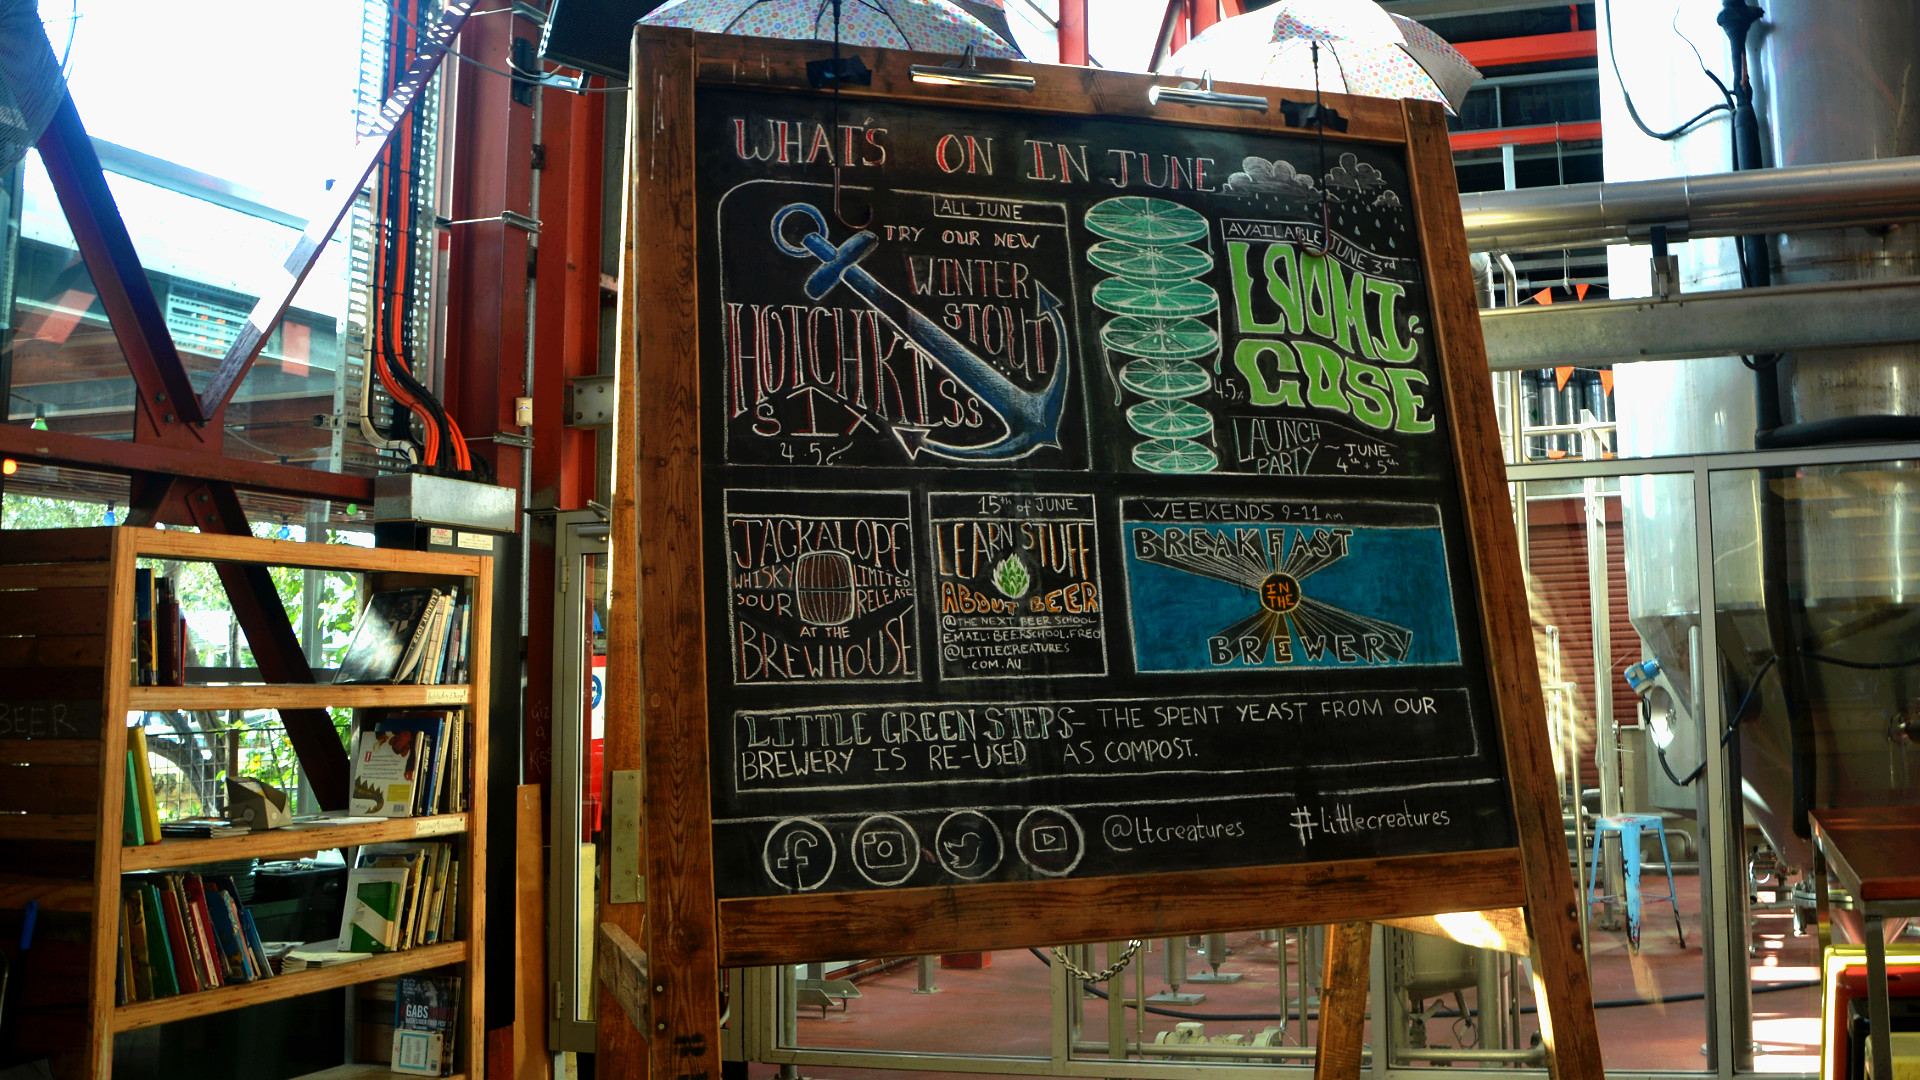 WHAT'S ON IN JUNE
ALL JUNE
TRY OUR NEW
WINTER
STOUT
HOTCHKISS
SIX
4.5%
AVAILABLE JUNE 3rd
LAOMI
GOSE
4.5%
LAUNCH
PARTY
~ JUNE
4th + 5th
JACKALOPE
WHISKY
SOUR
LIMITED
RELEASE
AT THE
BREWHOUSE
15th of JUNE
LEARN STUFF
ABOUT BEER
@THE NEXT BEER SCHOOL
EMAIL: BEERSCHOOL.FREO
@LITTLECREATURES
.COM.AU
WEEKENDS 9-11 AM
BREAKFAST
IN
THE
BREWERY
LITTLE GREEN STEPS- THE SPENT YEAST FROM OUR
BREWERY IS RE-USED AS COMPOST.
@ltcreatures #littlecreatures
BEER
GABS